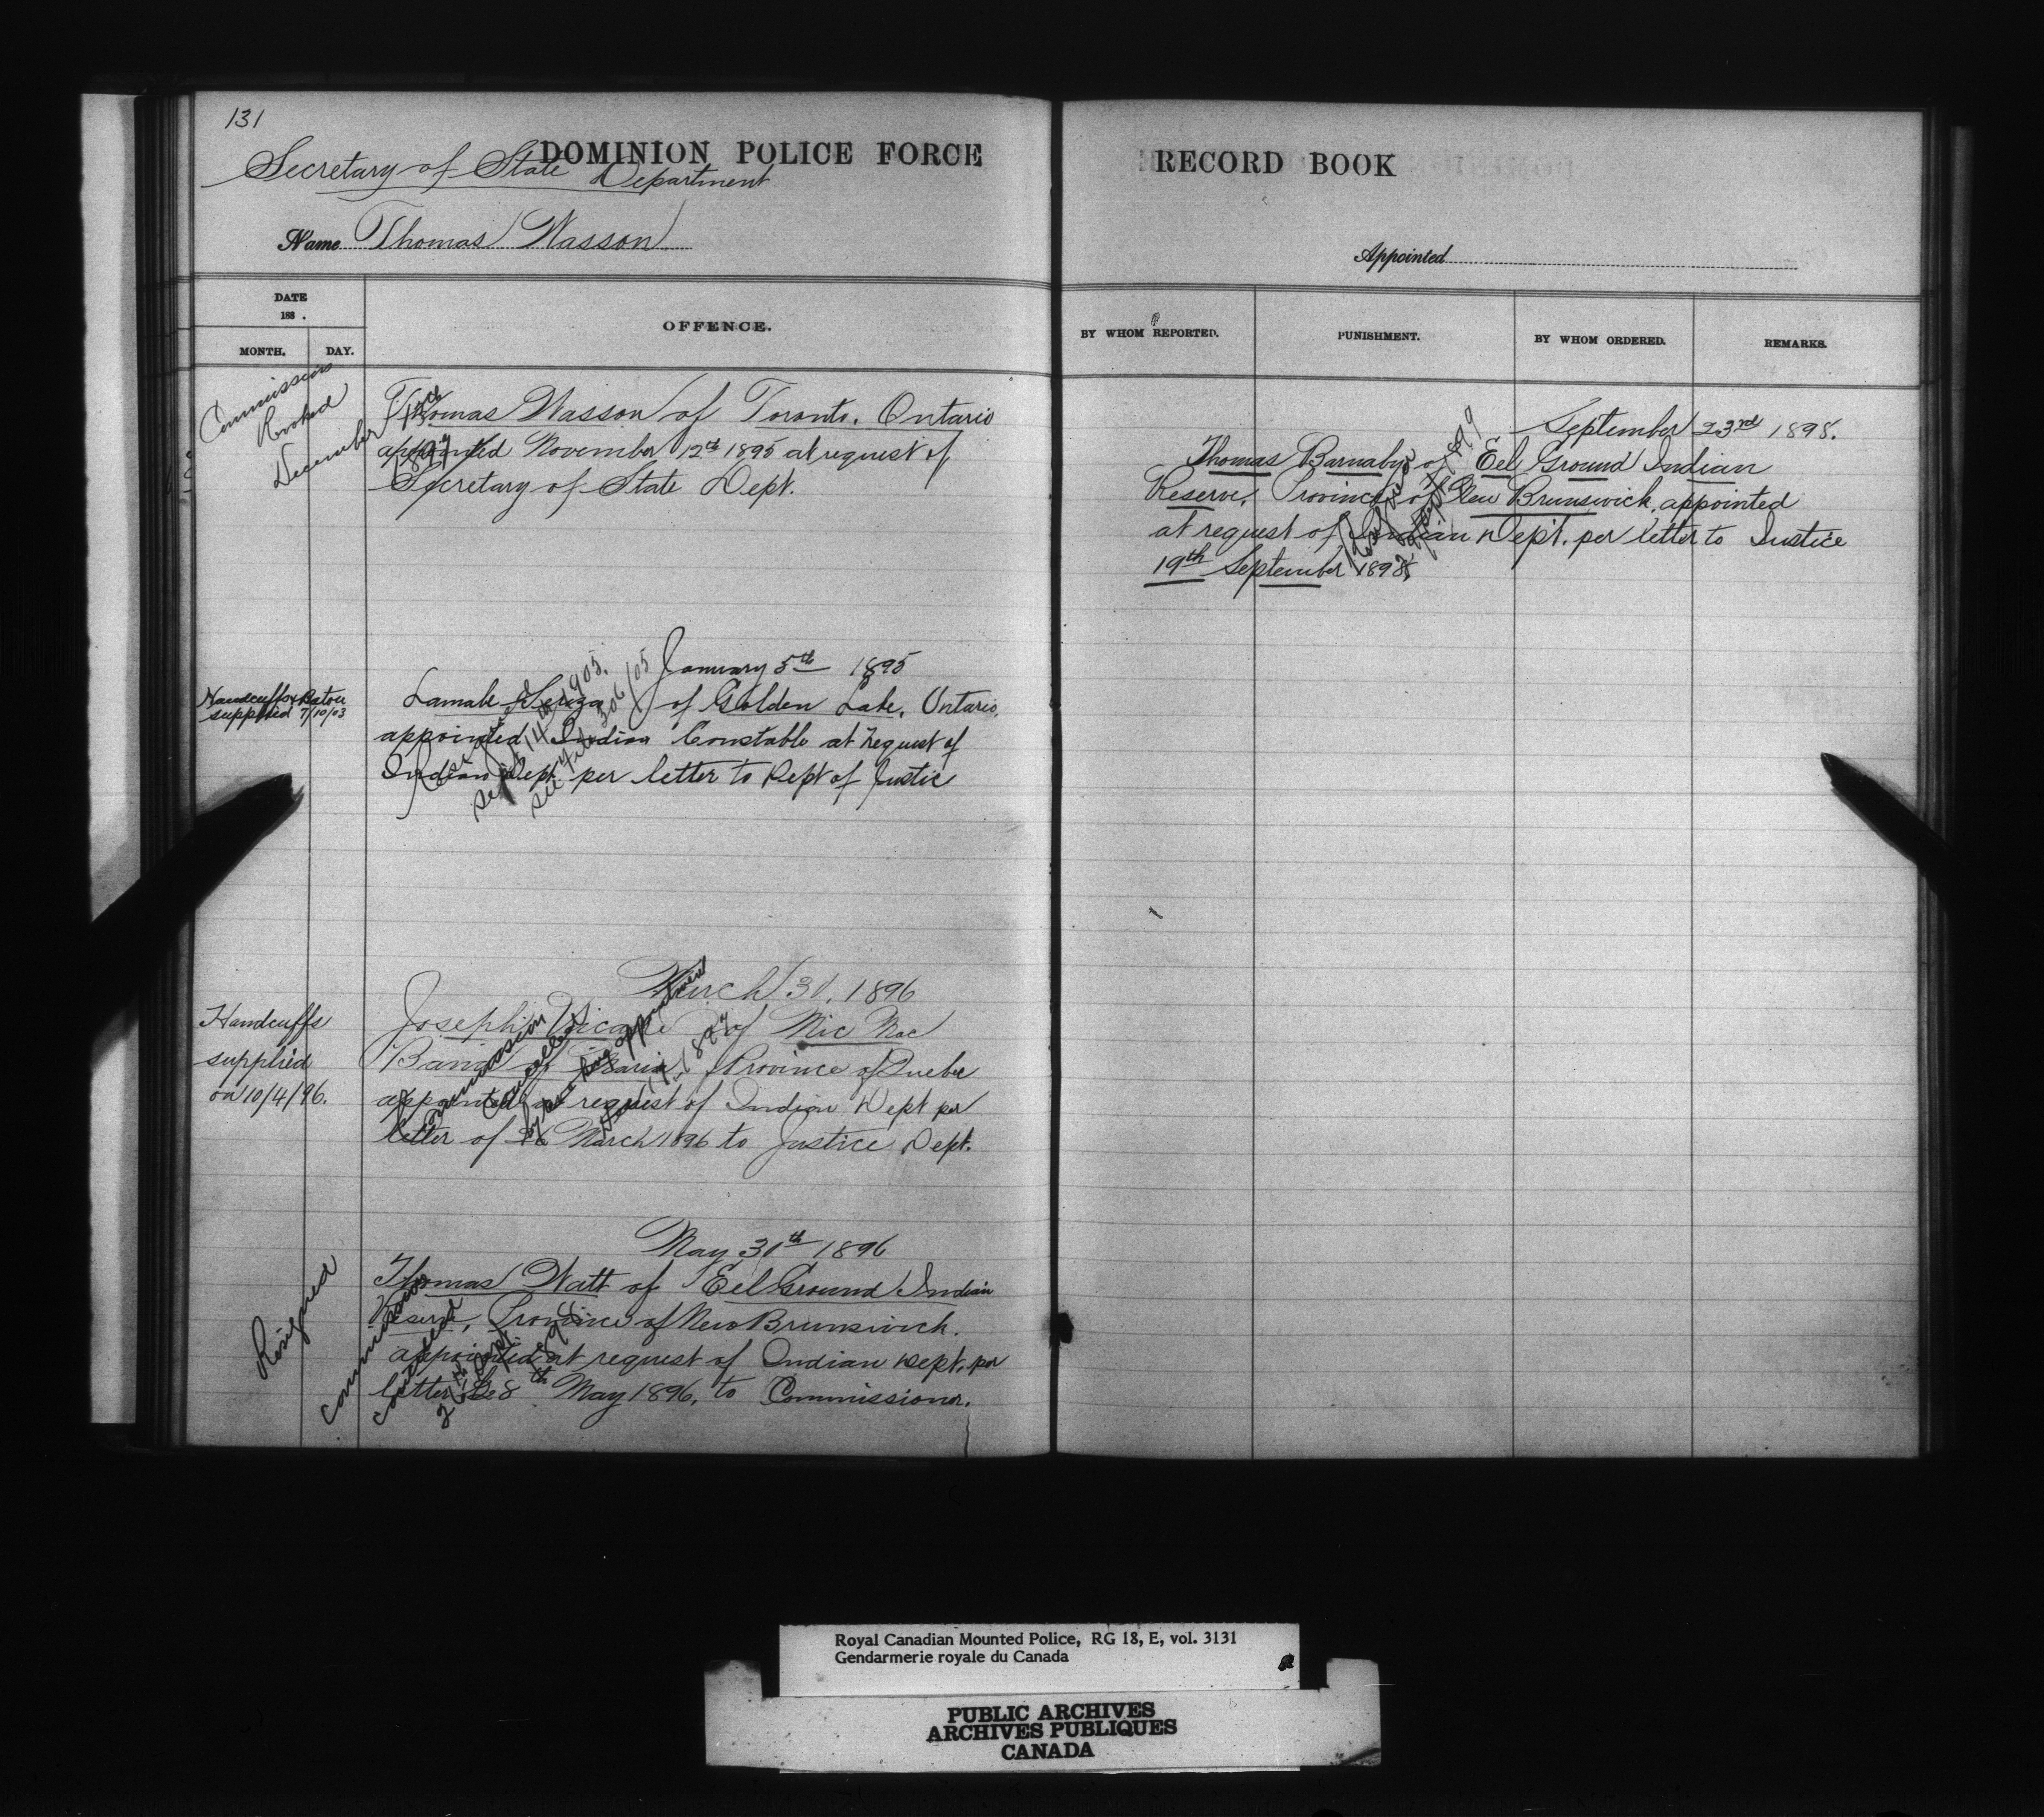 131
DOMINION POLICE FORCE
Secretary of State Department
Name Thomas Wasson
DATE
188 .
MONTH. DAY.
OFFENCE.
Commission
Revoked
December 13th
1897
Thomas Wasson of Toronto, Ontario
appointed November 12th 1895 at request of
Secretary of State Dept.
January 5th 1895
Handcuffs & Baton
supplied 7/10/03
Lamab of Golden Lake, Ontario,
appointed Indian Constable at request of
Indian Dept. per letter to Dept of Justice
Sept 14th 1905.
see file 306/05
March 31, 1896
Handcuffs
supplied
on 10/4/96.
Joseph of Mic Mac
Band of Maria, Province of Quebec
appointed at request of Indian Dept per
letter of 26 March 1896 to Justice Dept.
Commission
Cancelled
May 30th 1896
Resigned
Thomas Watt of Eel Ground Indian
Reserve, Province of New Brunswick.
appointed at request of Indian Dept. per
letter 8th May 1896, to Commissioner.
Commission
cancelled
RECORD BOOK
Appointed
BY WHOM REPORTED.
PUNISHMENT.
BY WHOM ORDERED.
REMARKS.
September 23rd 1898.
Thomas Barnaby of Eel Ground Indian
Reserve, Province of New Brunswick, appointed
at request of Indian Dept. per letter to Justice
19th September 1898.
Royal Canadian Mounted Police, RG 18, E, vol. 3131
Gendarmerie royale du Canada
PUBLIC ARCHIVES
ARCHIVES PUBLIQUES
CANADA